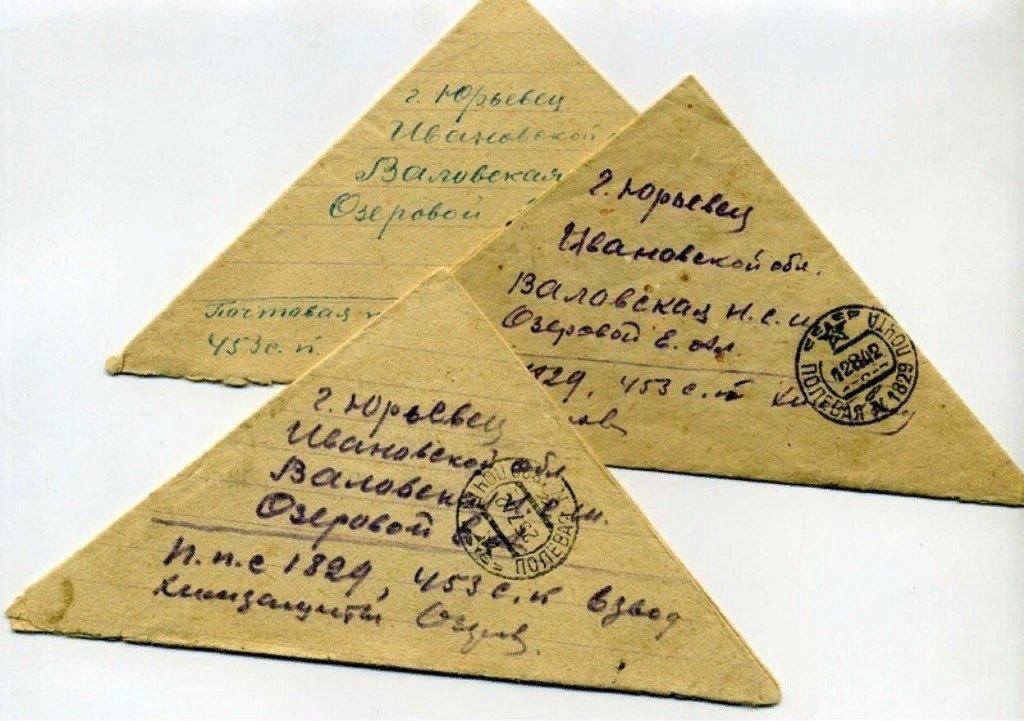 г. Юрьевец
Ивановской
Валовская
Озеровой
Почтовая
453 с. п.
г. Юрьевец
Ивановской обл.
Валовская н. с. ш.
Озеровой Е. Ал.
1829, 453 с. п.
ПОЛЕВАЯ ПОЧТА 1829
12 8 42
г. Юрьевец
Ивановской обл
Валовская н. с. ш.
Озеровой Е. А
П. п. с 1829, 453 с. п взвод
химзащиты Озеров.
ПОЛЕВАЯ ПОЧТА